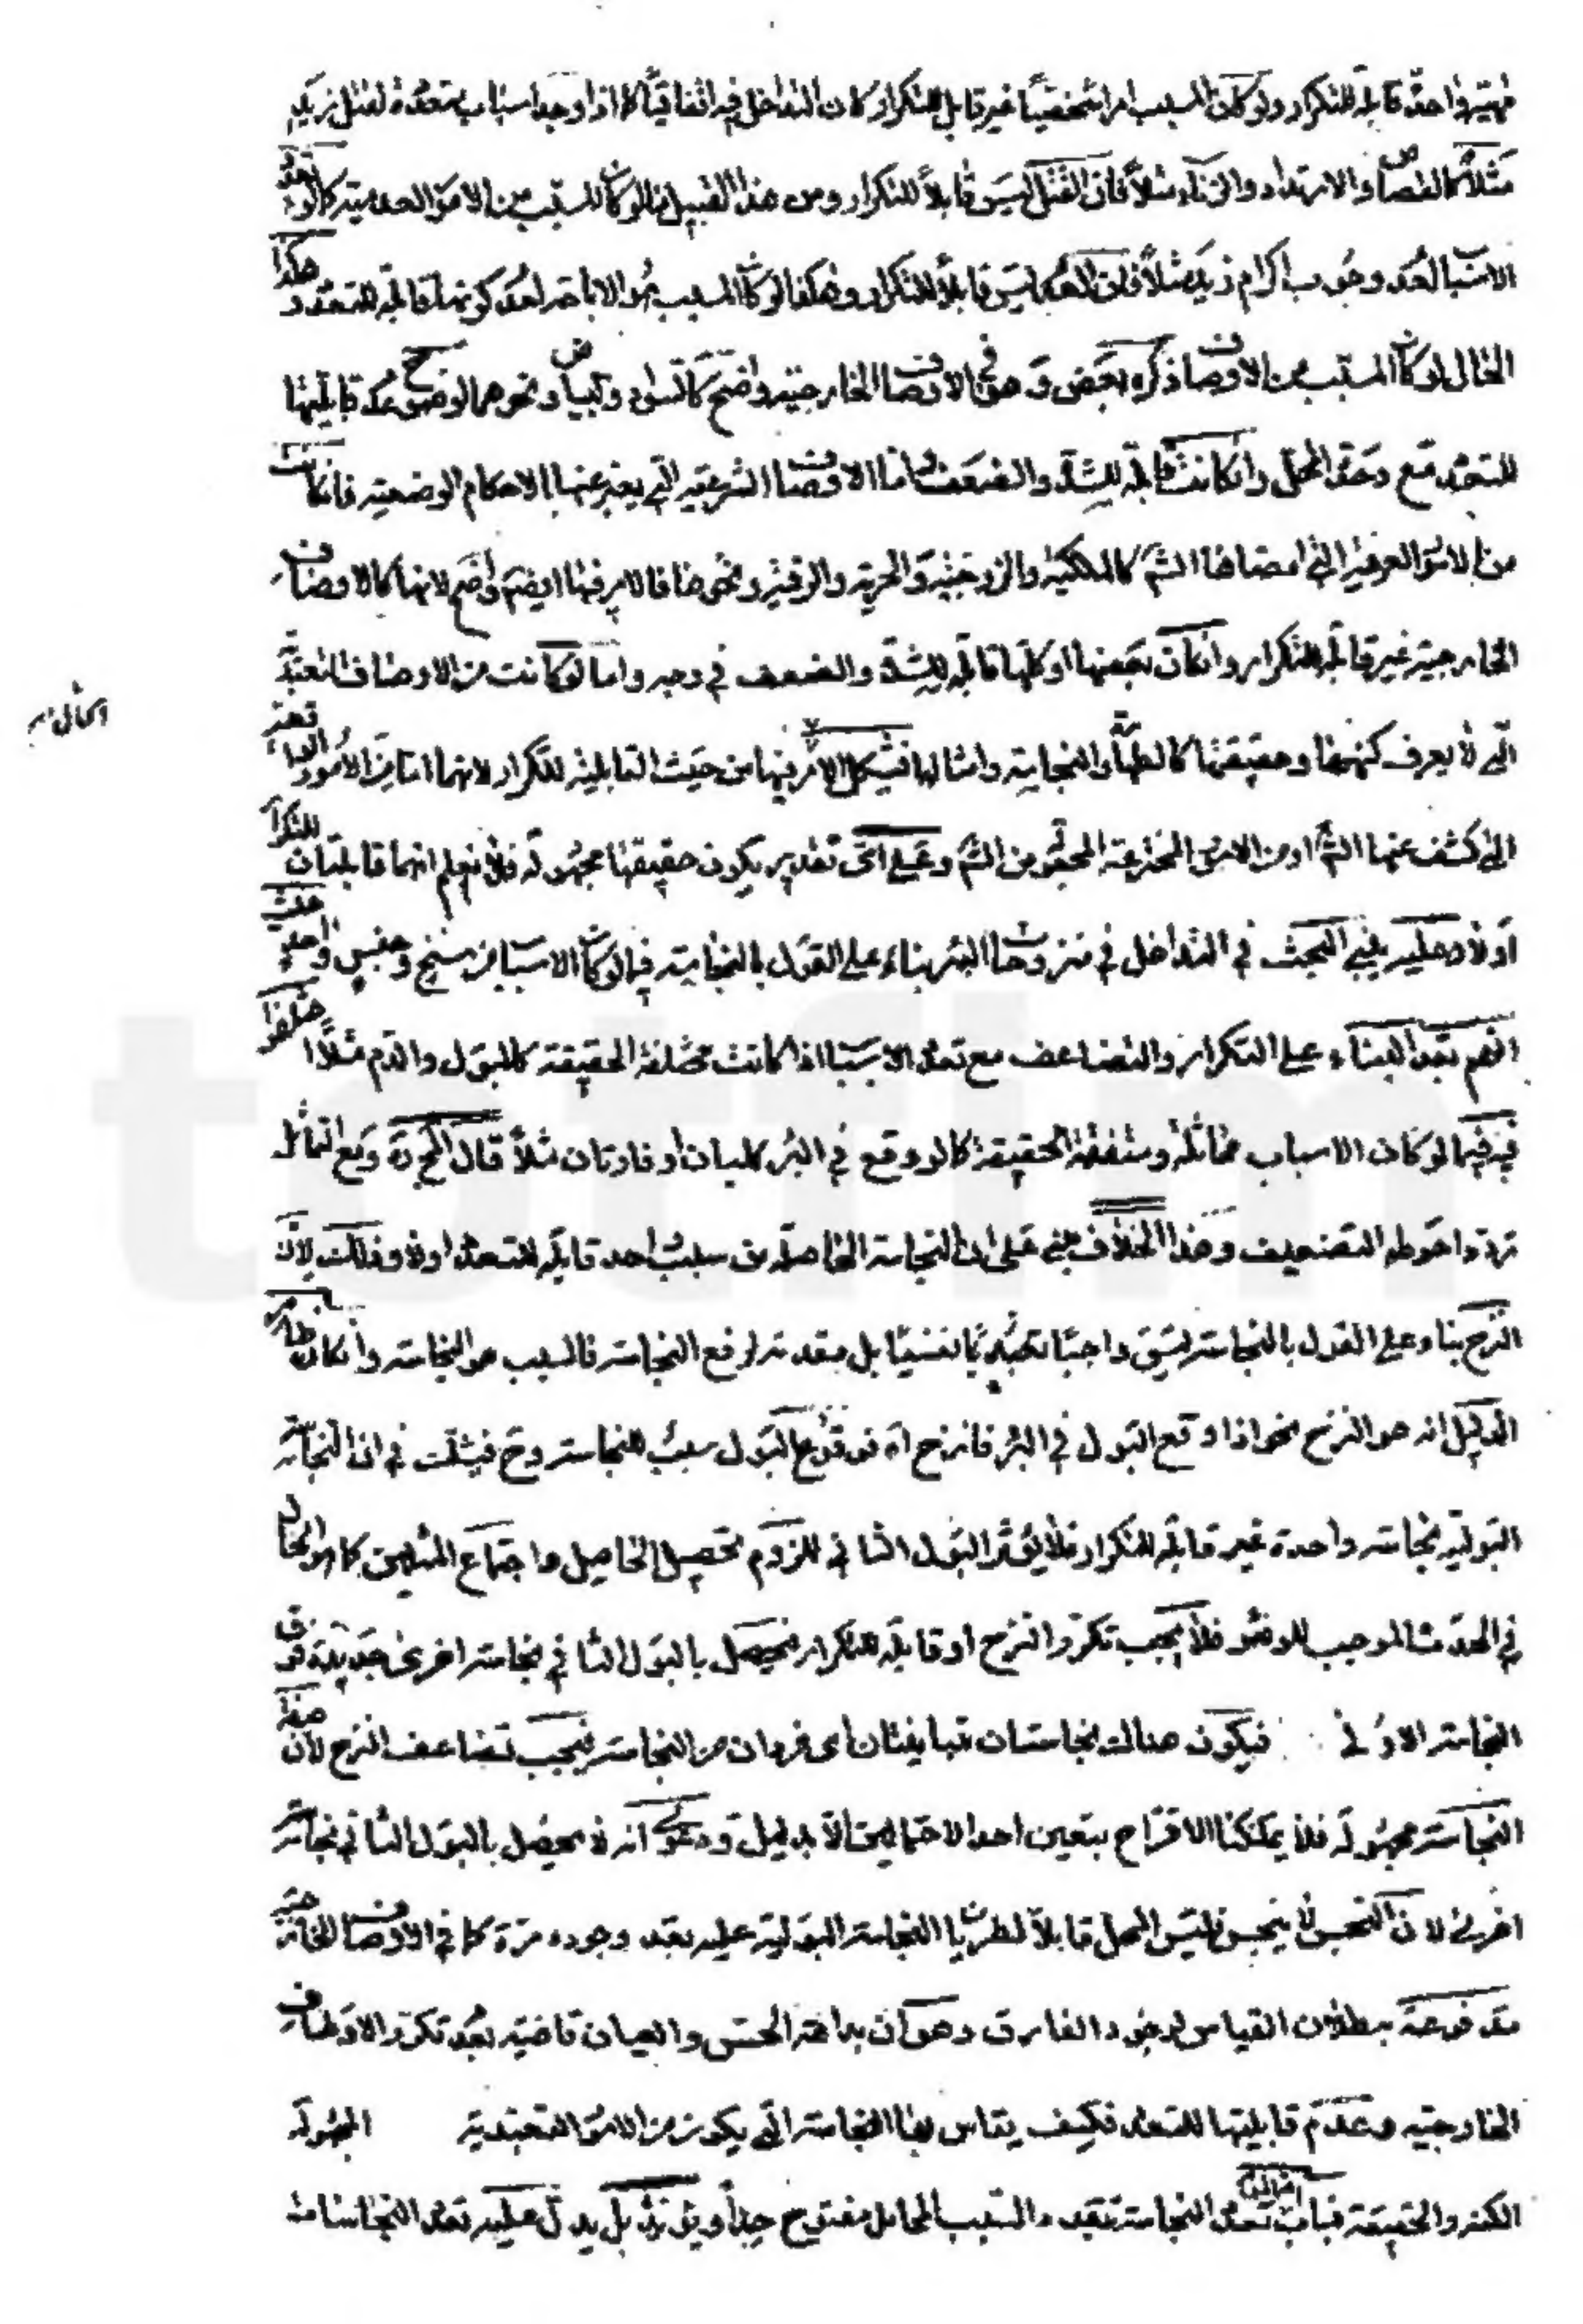 مهية واحدة قابلة للتكرار ولو كان المسبب امرا شخصيّا غير قابل للتكرار كان التداخل فيه اتفاقيّا كما اذا وجد اسباب متعددة لقتل زيد
مثلا كالقصاص والارتداد والزناء مثلاً فان القتل ليس قابلاً للتكرار ومن هذا القبيل ما لو كان المسبب من الامور العدمية كما لو اتحد
الاسباب لعدم وجوب اكرام زيد مثلاً فان العدم ليس قابلا للتكرار وهكذا لو كان المسبب هو الاباحة لعدم كونها قابلة للتعدد وهكذا
الحال لو كان المسبب من الاوصاف ذكره بعض وهو في الاوصاف الخارجية واضح كالسواد والبياض ونحوهما لوضوح عدم قابليتها
للتعدد مع وحدة المحل وان كانت قابلة للشدة والضعف واما الاوصاف الشرعية التي يعبر عنها بالاحكام الوضعية فان كانت
من الامور العرفية التي امضاها الشرع كالملكية والزوجية والحرية والرقية ونحوها فالامر فيها ايضا واضح لانها كالاوصاف
الخارجية غير قابلة للتكرار وان كان بعضها او كلها قابلة للشدة والضعف في وجه واما لو كانت من الاوصاف التعبدية
التي لا يعرف كنهها وحقيقتها كالطهارة والنجاسة وامثالها فيشكل الامر فيها من حيث القابلية للتكرار لانها اما من الامور الواقعية
التي كشف عنها الشرع او من الامور المخترعة المجعولة من الشرع وعلى اى تقدير يكون حقيقتها مجهولة فلا نعلم انهما قابلتان للتكرار
او لا وعليه يبنى البحث في التداخل في منزوحات البئر بناء على القول بالنجاسة فيما لو كان الاسباب من سنخ وجنس واحد
انهم بعد البناء على التكرار والتضاعف مع تعدد الاسباب اذا كانت مختلفة الحقيقة كالبول والدم مثلاً اختلفوا
فيه فيما لو كان الاسباب مماثلة ومتفقة الحقيقة كما لو وقع في البئر كلبان او فارتان مثلاً قال في ومع التماثل
تردد احوطه التضعيف وهذا الخلاف مبني على ان النجاسة الحاصلة من سبب واحد قابلة للتعدد او لا وذلك لان
النزح بناء على القول بالنجاسة ليس واجبا تعبديا نفسيّا بل مقدمة لرفع النجاسة فالسبب هو النجاسة وان كان ظاهر
الدليل انه هو النزح نحو اذا وقع البول في البئر فانزح اه فوقوع البول سبب للنجاسة وح فيشك في ان النجاسة
البولية نجاسة واحدة غير قابلة للتكرار فلا يؤثر البول الثاني للزوم تحصيل الحاصل واجتماع المثلين كما هو الحال
في الحدث الموجب للوضوء فلا يجب تكرر النزح او قابلة للتكرار فيحصل بالبول الثاني نجاسة اخرى جديدة فوق
النجاسة الاولى فيكون هناك نجاستان متباينتان اى فردان من النجاسة فيجب تضاعف النزح لان حقيقة
النجاسة مجهولة فلا يمكننا الاقتراح بتعين احد الاحتمالين الا بدليل ودعوى انه لا يحصل بالبول الثاني نجاسة
اخرى لان النجس لا ينجس فليس المحل قابلاً لطريان النجاسة البولية عليه بعد وجوده مرة كما في الاوصاف الخارجية
مدفوعة ببطلان القياس لوجود الفارق وهو ان بداهة الحس والعيان قاضية بعدم تكرر الاوصاف
الخارجية وعدم قابليتها للتعدد فكيف يقاس بها النجاسة التي يكون من الامور التعبدية المجهولة
الكنه والحقيقة فباب تعدد النجاسة بتعدد السبب المحامل مفتوح جدا بل يدل عليه تعدد النجاسات